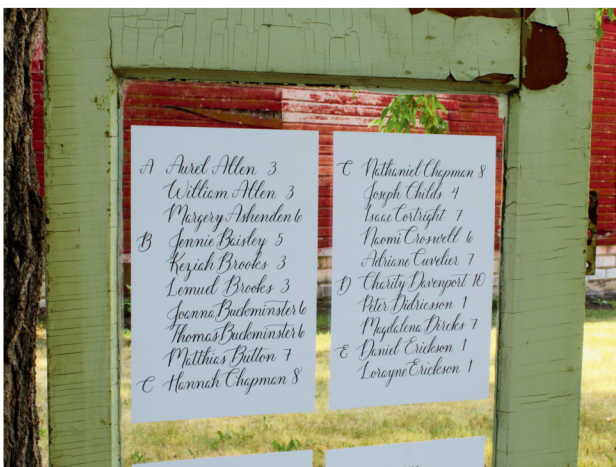 A Aurel Allen 3
William Allen 3
Margery Ashenden 6
B Jennie Baisley 5
Keziah Brooks 3
Lemuel Brooks 3
Joanna Buckminster 6
Thomas Buckminster 6
Matthias Button 7
C Hannah Chapman 8
C Nathaniel Chapman 8
Joseph Childs 4
Isaac Cortright 7
Naomi Croswell 6
Adriane Cuvelier 7
D Charity Davenport 10
Peter Didricsson 1
Magdalena Dircks 7
E Daniel Erickson 1
Lorayne Erickson 1